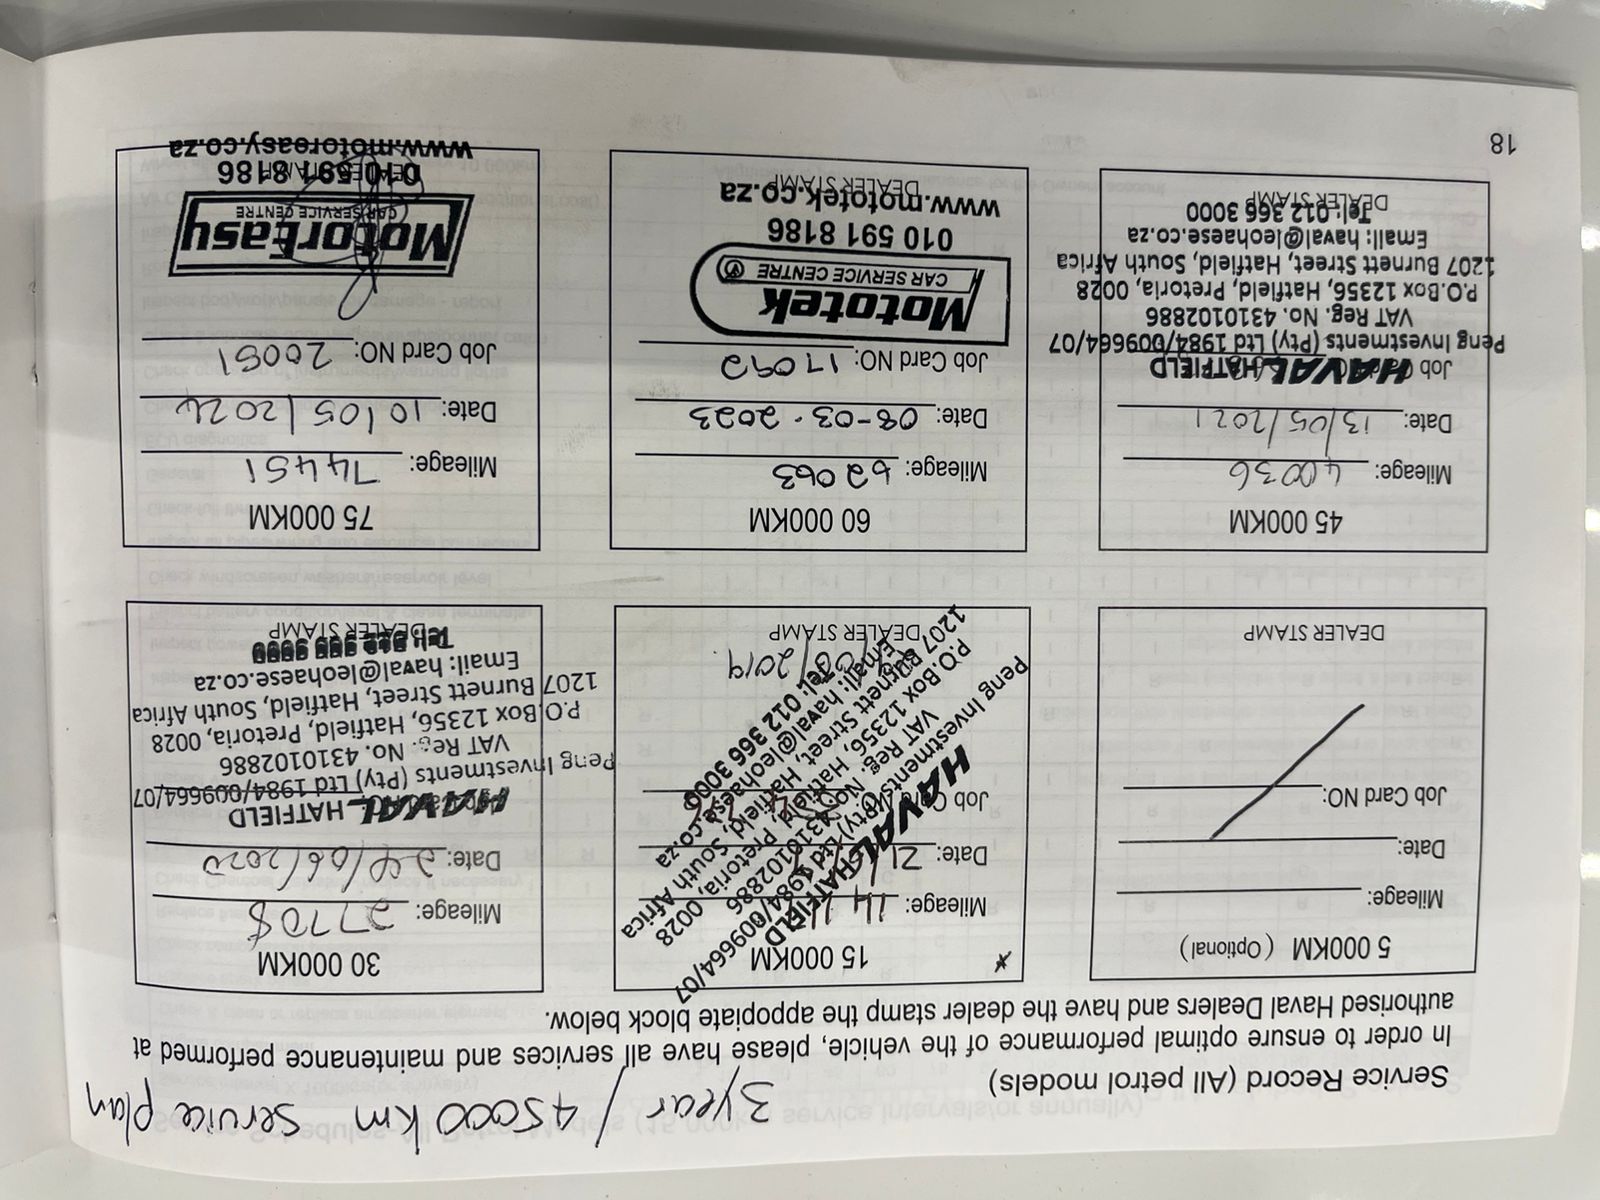 3year / 45000 km service plan
Service Record (All petrol models)
In order to ensure optimal performance of the vehicle, please have all services and maintenance performed at
authorised Haval Dealers and have the dealer stamp the appopiate block below.
5 000KM (Optional)
Mileage:
Date:
Job Card NO:
DEALER STAMP
15 000KM
Mileage:
Date: 21
Job Card
HAVAL HATFIELD
Peng Investments (Pty) Ltd 1984/009664/07
VAT Reg. No. 4310102886
P.O.Box 12356, Hatfield, Pretoria, 0028
1207 Burnett Street, Hatfield, South Africa
Email: haval@leohaese.co.za
Tel: 012 366 3000
DEALER STAMP
30 000KM
Mileage: 27708
Date: 24/06/2020
HAVAL HATFIELD
Peng Investments (Pty) Ltd 1984/009664/07
VAT Reg. No. 4310102886
P.O.Box 12356, Hatfield, Pretoria, 0028
1207 Burnett Street, Hatfield, South Africa
Email: haval@leohaese.co.za
Tel: 012 366 3000
DEALER STAMP
45 000KM
Mileage: 40036
Date: 13/05/2021
Job
HAVAL HATFIELD
Peng Investments (Pty) Ltd 1984/009664/07
VAT Reg. No. 4310102886
P.O.Box 12356, Hatfield, Pretoria, 0028
1207 Burnett Street, Hatfield, South Africa
Email: haval@leohaese.co.za
Tel: 012 366 3000
DEALER STAMP
60 000KM
Mileage: 62063
Date: 08-03-2023
Job Card NO: 17092
Mototek
CAR SERVICE CENTRE
010 591 8186
www.mototek.co.za
DEALER STAMP
75 000KM
Mileage: 74451
Date: 10/05/2024
Job Card NO: 20051
MotorEasy
CAR SERVICE CENTRE
010 591 8186
DEALER STAMP
www.motoreasy.co.za
18